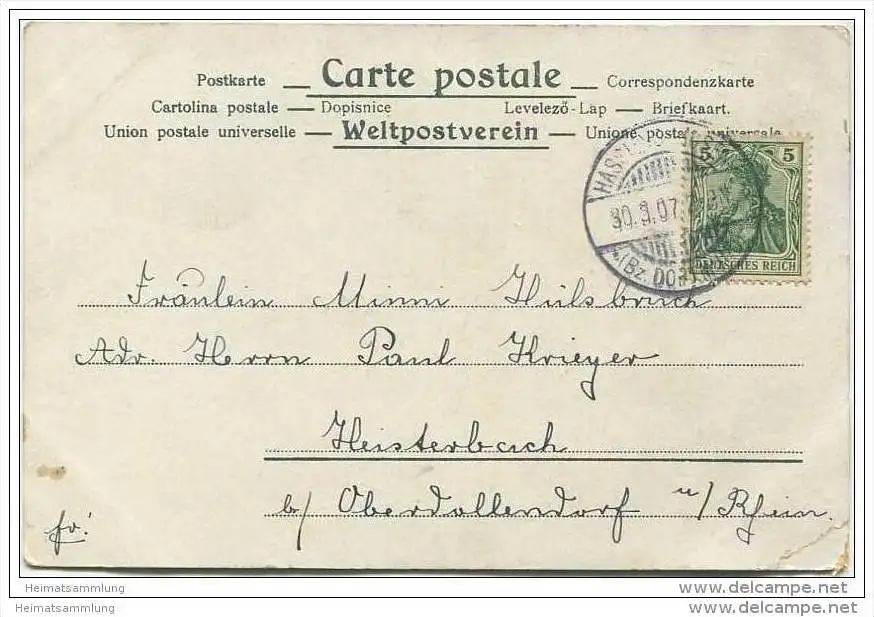 Postkarte — Carte postale — Correspondenzkarte
Cartolina postale — Dopisnice Levelező-Lap — Briefkaart.
Union postale universelle — Weltpostverein — Unione postale universale
5 5
30.3.07
(Bz. DO
DEUTSCHES REICH
Fräulein Minni Hülsbruch
Adr. Herrn Paul Krieger
Heisterbach
b/ Oberdollendorf a/ Rhein.
fr!
Heimatsammlung
www.delcampe.net
Heimatsammlung
www.delcampe.net